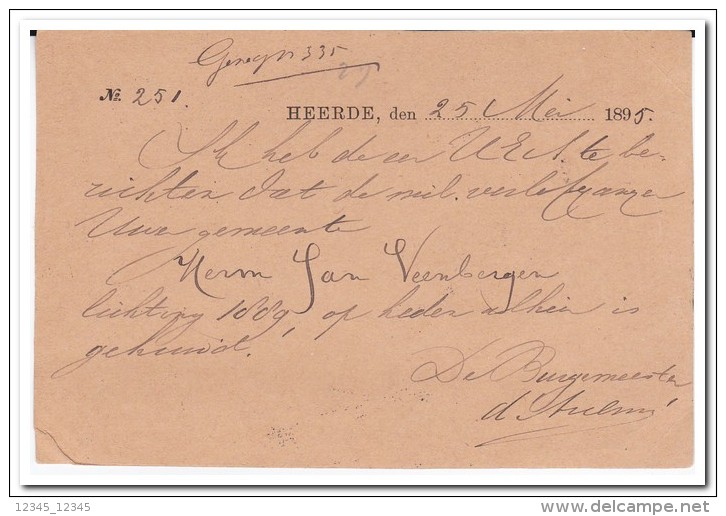 335
29
№ 251.
HEERDE, den 25 Mei 1895.
Ik heb de eer U E A. te be-
richten dat de mil. verlofganger
Uwer gemeente
Herm Jan Veenbergen
lichting 1889, op heden alhier is
gehuwd.
De Burgemeester
12345_12345
delcampe.net